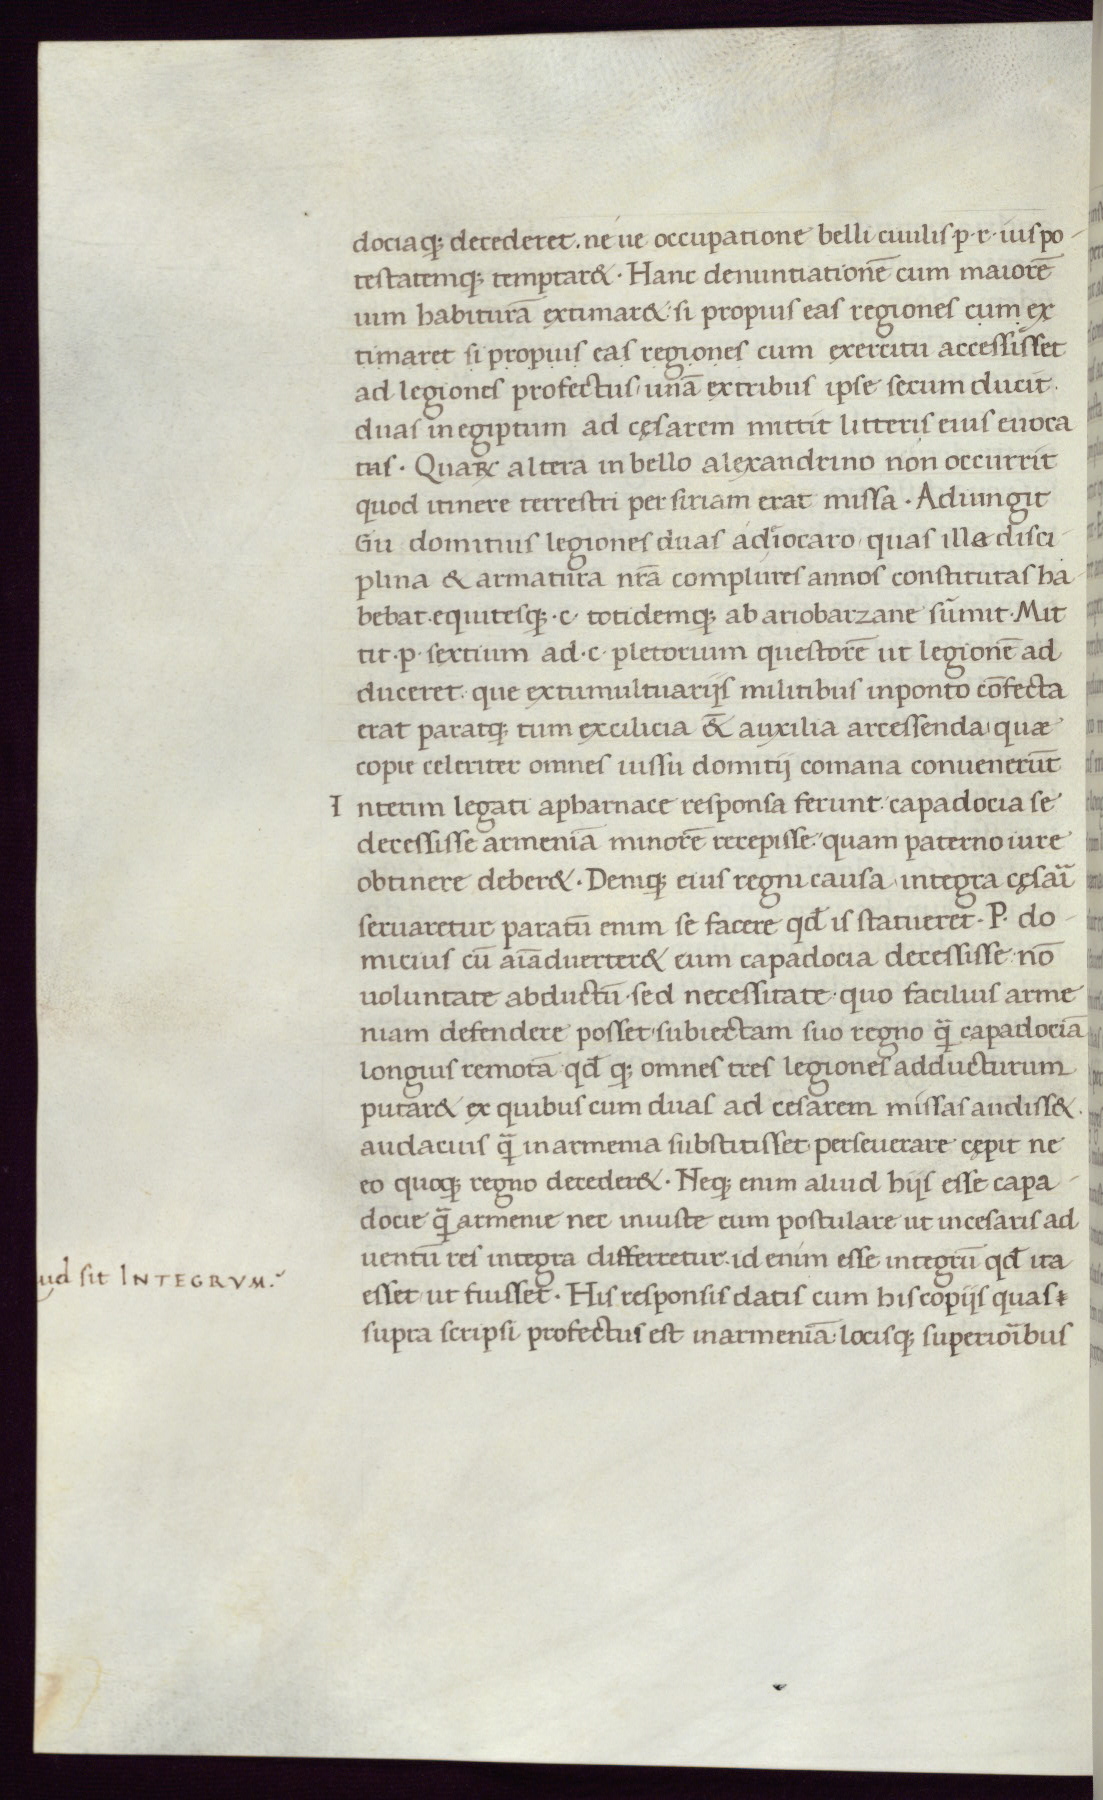 dociaq; decederet. ne ue occupatione belli ciuilis p·r·ius po-
testatemq; temptar&· Hanc denuntiationē cum maiorē
uim habiturā extimar& si propius eas regiones cum ex
timaret si propius eas regiones cum exercitu accessisset
ad legiones profectus unā ex tribus ipse secum ducit.
duas in egiptum ad cęsarem mittit litteris eius euoca
tas· Quarū altera in bello alexandrino non occurrit
quod itinere terrestri per siriam erat missa· Adiungit
Gn domitius legiones duas adiocaro quas ille disci-
plina & armatura nr̄a complures annos constitutas ha-
bebat. equitesq;·c· totidemq; ab ariobarzane sūmit· Mit
tit·p·sextium ad·c·pletorium questorē ut legionē ad
duceret. que ex tumultuarijs militibus in ponto cōfecta
erat paratq; tum ex cilicia & auxilia arcessenda quæ
copie celeriter omnes iussu domitij comana conuenerūt
Interim legati a pharnace responsa ferunt. capadocia se
decessisse armeniā minorē recepisse. quam paterno iure
obtinere deber&· Deniq; eius regni causa integra cęsari
seruaretur paratū enim se facere qđ is statueret· P· do-
micius cū aīaduerter& eum capadocia decessisse nō
uoluntate abductū·sed necessitate·quo facilius arme
niam defendere posset subiectam suo regno q̄ capadociā
longius remotā qđ q; omnes tres legiones adducturum
putar& ex quibus cum duas ad cesarem missas audiss&.
audacius q̄ in armenia substitisset perseuerare cępit ne
eo quoq; regno deceder&· Neq; enim aliud hijs esse capa-
docie q̄ armenie nec iniuste eum postulare ut in cesaris ad
uentū res integra differretur. id enim esse integrū qđ ita
ud sit INTEGRVM.
esset ut fuisset· His responsis datis cum his copijs quas
supra scripsi profectus est in armeniā locisq; superioribus